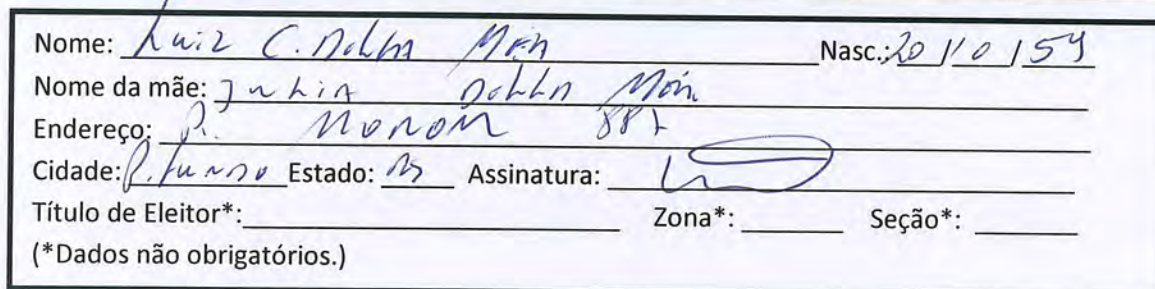 Nome: Luiz C. Dalla Nasc.: 20/10/59
Nome da mãe: Julia Dalla
Endereço: R.
Cidade: P. Fundo Estado: RS Assinatura:
Título de Eleitor*: Zona*: Seção*:
(*Dados não obrigatórios.)